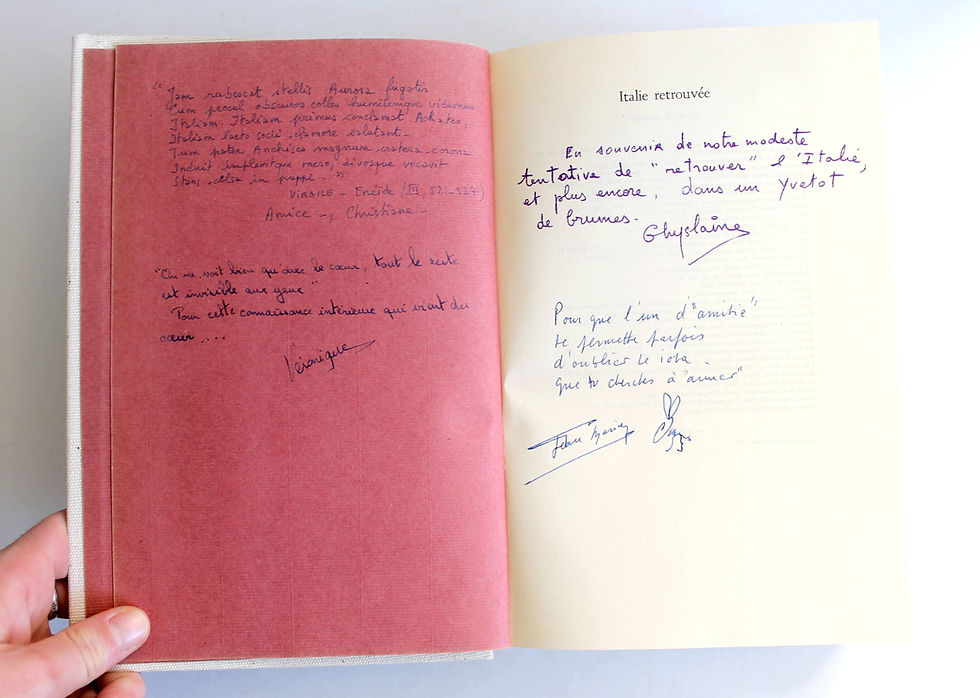 "Jam rubescat stellis Aurora fugatis
Cum procul obscuros colles humilemque videmus
Italiam. Italiam primus conclamat Achates,
Italiam laeto socii clamore salutant_
Tum pater Anchises magnum cratera corona
Induit implevitque mero, divosque vocavit
Stans celsa in puppi_"
VIRGILE_ Enéide (III, 521-527)
Amice_, Christiane_
"On ne voit bien qu'avec le cœur, tout le reste
est invisible aux yeux"
Pour cette connaissance intérieure qui vient du
cœur....
Véronique
Italie retrouvée
En souvenir de notre modeste
tentative de "retrouver" l'Italie,
et plus encore, dans un Yvetot
de brumes.
Ghyslaine
Pour que l'un d'"amitié"
te permette parfois
d'oublier le iota_
que tu cherches à "aimer"
Jean Marie